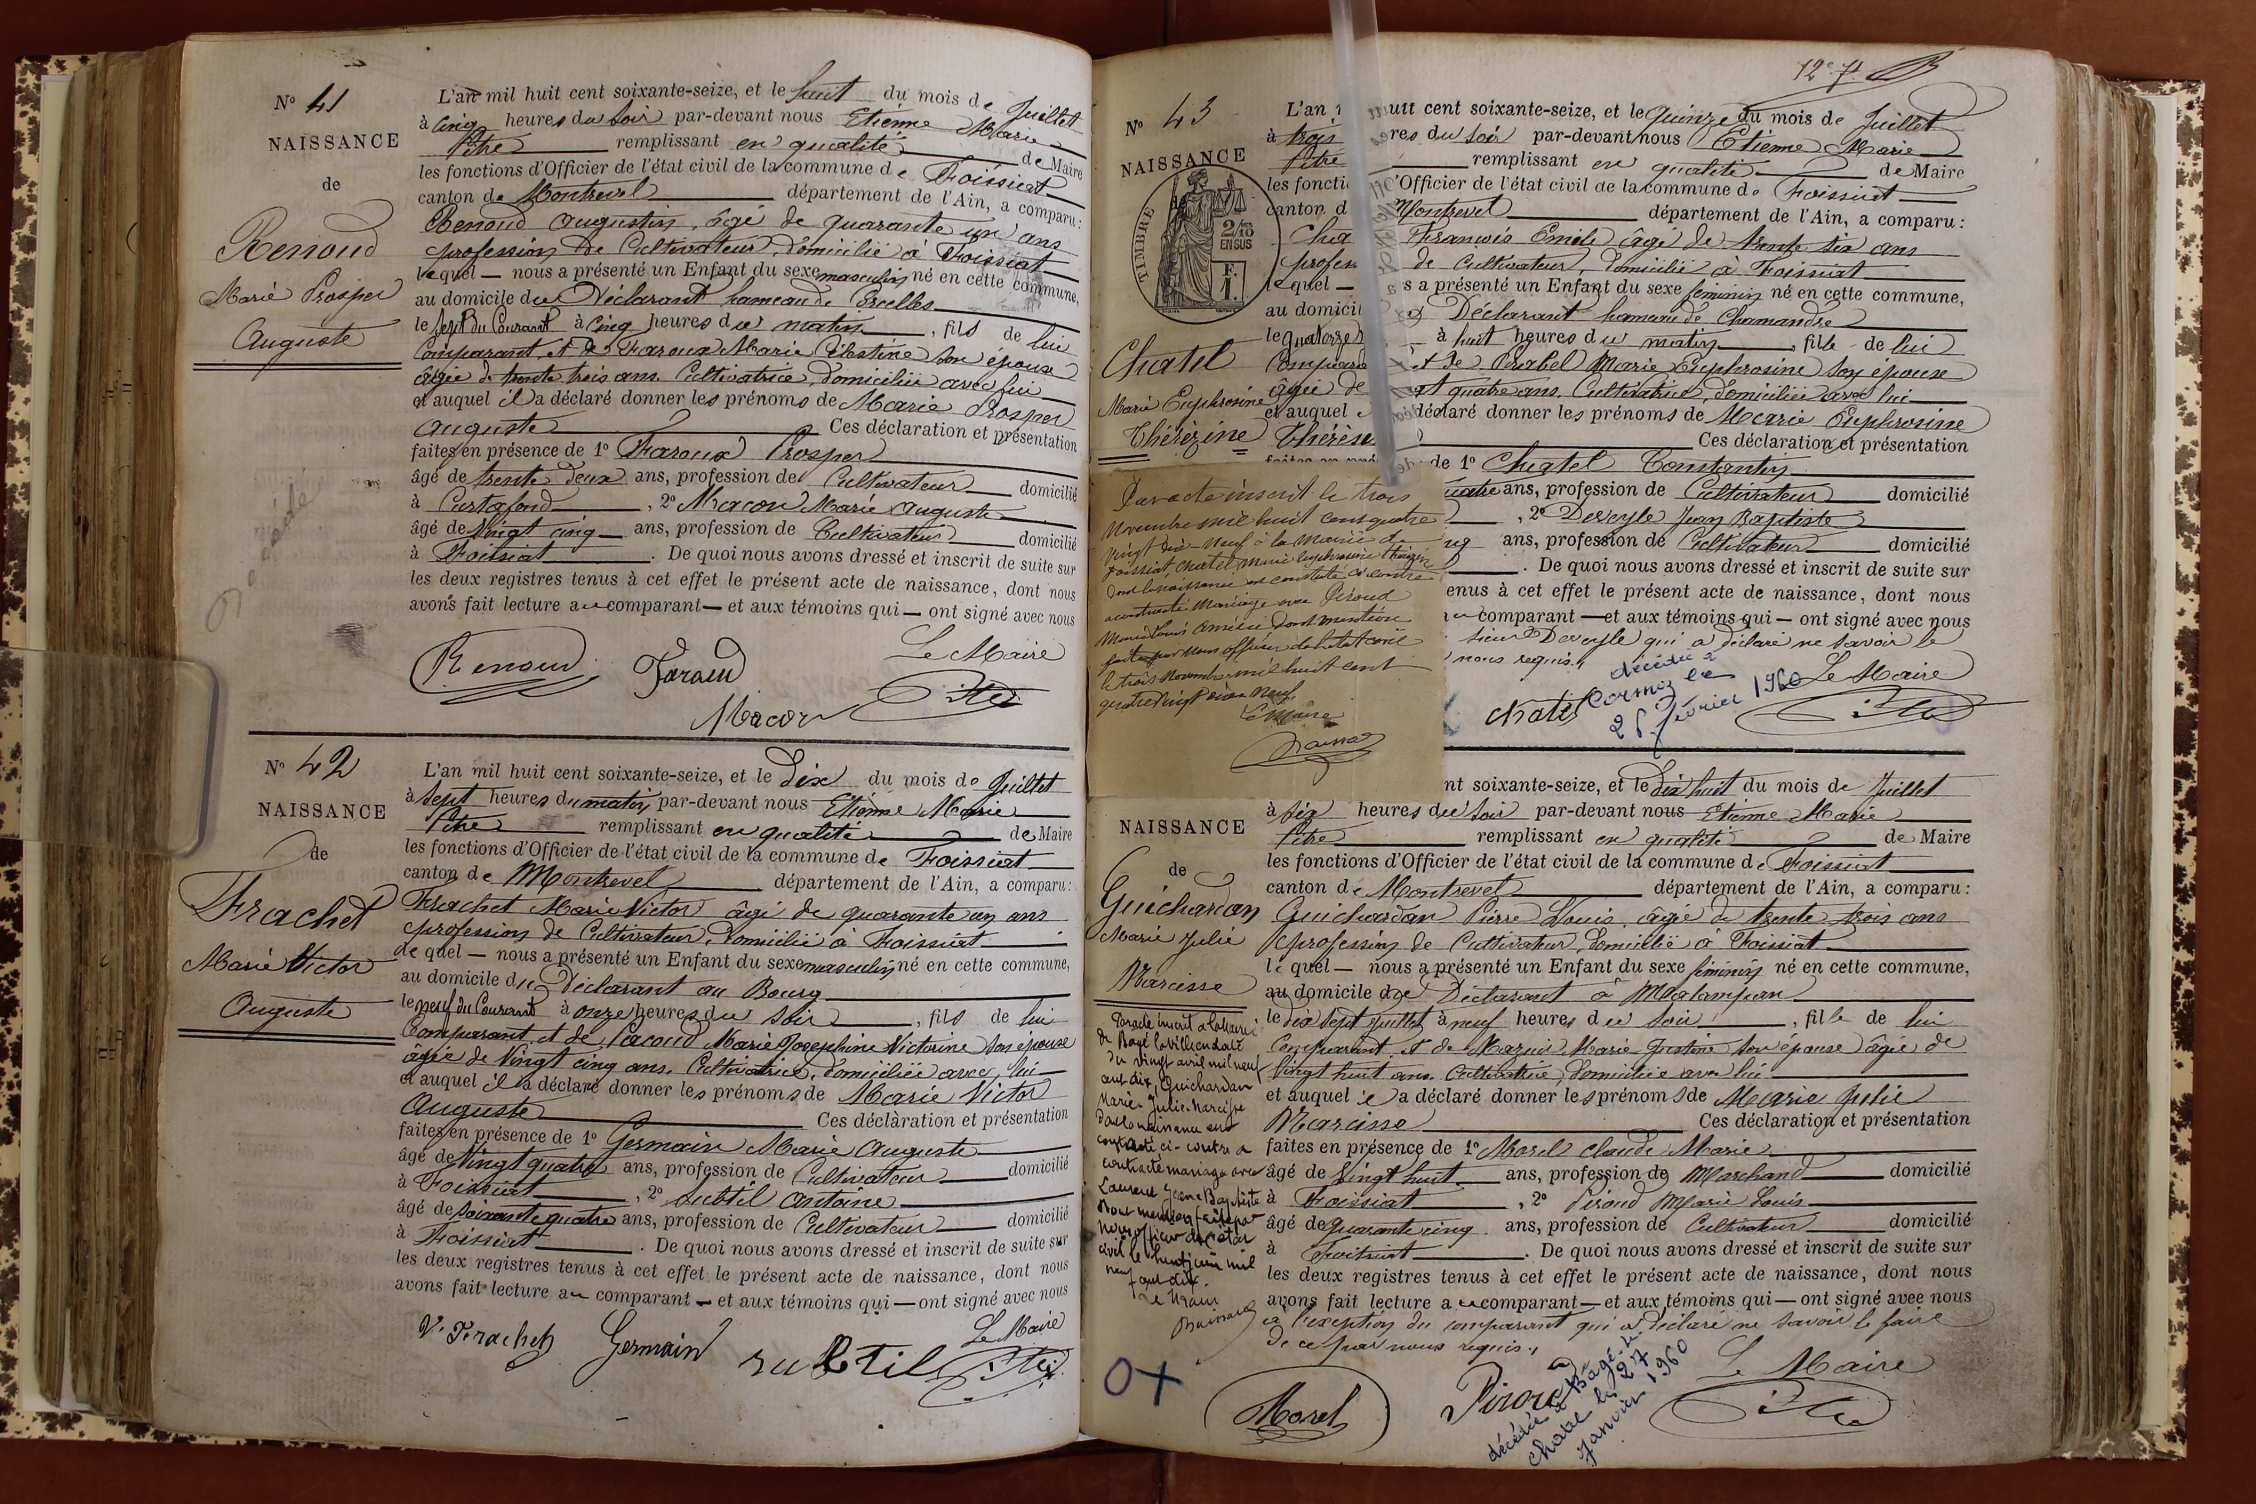 N° 41
NAISSANCE
de
Renoud
Marie Prosper
Auguste
L'an mil huit cent soixante-seize, et le huit du mois de Juillet
à cinq heures du soir par-devant nous Etienne Marie
Pitre remplissant en qualité de Maire
les fonctions d'Officier de l'état civil de la commune de Foissiat
canton de Montrevel département de l'Ain, a comparu:
Renoud Augustin, âgé de quarante un ans
profession de Cultivateur, domicilié à Foissiat
lequel — nous a présenté un Enfant du sexe masculin né en cette commune,
au domicile du Déclarant hameau de Cocelles
le sept du Courant à cinq heures du matin, fils de lui
Comparant, et de Faroux Marie Célestine son épouse
âgée de trente trois ans, Cultivatrice, domiciliée avec lui
et auquel il a déclaré donner les prénoms de Marie Prosper
Auguste Ces déclaration et présentation
faites en présence de 1° Faroux Prosper
âgé de trente deux ans, profession de Cultivateur domicilié
à Curtafond, 2° Macon Marie Auguste
âgé de Vingt cinq ans, profession de Cultivateur domicilié
à Foissiat. De quoi nous avons dressé et inscrit de suite sur
les deux registres tenus à cet effet le présent acte de naissance, dont nous
avons fait lecture au comparant — et aux témoins qui — ont signé avec nous
Le Maire
Renoud Faroud
Macon Pitre
N° 42
NAISSANCE
de
Frachet
Marie Victor
Auguste
L'an mil huit cent soixante-seize, et le dix du mois de Juillet
à sept heures du matin par-devant nous Etienne Marie
Pitre remplissant en qualité de Maire
les fonctions d'Officier de l'état civil de la commune de Foissiat
canton de Montrevel département de l'Ain, a comparu:
Frachet Marie Victor âgé de quarante un ans
profession de Cultivateur, domicilié à Foissiat
le quel — nous a présenté un Enfant du sexe masculin né en cette commune,
au domicile du Déclarant au Bourg
le neuf du Courant à onze heures du soir, fils de lui
Comparant, et de Pacoud Marie Josephine Victorine son épouse
âgée de Vingt cinq ans, Cultivatrice, domiciliée avec lui
et auquel il a déclaré donner les prénoms de Marie Victor
Auguste Ces déclaration et présentation
faites en présence de 1° Germain Marie Auguste
âgé de Vingt quatre ans, profession de Cultivateur domicilié
à Foissiat, 2° Subtil Antoine
âgé de soixante quatre ans, profession de Cultivateur domicilié
à Foissiat. De quoi nous avons dressé et inscrit de suite sur
les deux registres tenus à cet effet le présent acte de naissance, dont nous
avons fait lecture au comparant — et aux témoins qui — ont signé avec nous
Le Maire
V. Frachet Germain subtil Pitre
12e
N° 43
NAISSANCE
TIMBRE
2/10
EN SUS
F.
1.
Chatel
Marie Euphrosine
Thérèzine
L'an cent soixante-seize, et le quinze du mois de Juillet
à trois res du soir par-devant nous Etienne Marie
Pitre remplissant en qualité de Maire
les foncti 'Officier de l'état civil de la commune de Foissiat
canton d Montrevel département de l'Ain, a comparu:
Cha François Emile âgé de trente six ans
profes de Cultivateur, domicilié à Foissiat
le quel — s a présenté un Enfant du sexe féminin né en cette commune,
au domicil Déclarant hameau de Chamandre
le quatorze à huit heures du matin, fille de lui
Compara et de Perabel Marie Euphrosine son épouse
âgée de quatre ans, Cultivatrice, domiciliée avec lui
et auquel déclaré donner les prénoms de Marie Euphrosine
Thérès Ces déclaration et présentation
de 1° Chatel Constantin
quatre ans, profession de Cultivateur domicilié
, 2° Devayle Jean Baptiste
ans, profession de Cultivateur domicilié
. De quoi nous avons dressé et inscrit de suite sur
enus à cet effet le présent acte de naissance, dont nous
comparant — et aux témoins qui — ont signé avec nous
sieur Devayle qui a déclaré ne savoir le
nous requis.
Le Maire
Chatel Pitre
décédée à
Cormoz le
26 février 1960
Par acte inscrit le trois
Novembre mil huit cent quatre
Vingt dix-neuf à la Mairie de
Foissiat, Chatel Marie Euphrosine Thérèzine
dont la naissance est constatée ci contre
a contracté Mariage avec Péroud
Marie Louis Aimé dont mention
faite par nous officier de l'état civil
le trois Novembre mil huit cent
quatre vingt dix neuf
Le Maire
NAISSANCE
de
Guichardan
Marie Julie
Narcisse
nt soixante-seize, et le dix huit du mois de Juillet
à six heures du soir par-devant nous Etienne Marie
Pitre remplissant en qualité de Maire
les fonctions d'Officier de l'état civil de la commune de Foissiat
canton de Montrevel département de l'Ain, a comparu:
Guichardan Pierre Louis, âgé de trente trois ans
profession de Cultivateur, domicilié à Foissiat
le quel — nous a présenté un Enfant du sexe féminin né en cette commune,
au domicile du Déclarant à Malampan
le dix sept Juillet à neuf heures du soir, fille de lui
Comparant, et de Mazuir Marie Justine son épouse âgée de
Vingt huit ans, Cultivatrice, domiciliée avec lui
et auquel il a déclaré donner les prénoms de Marie Julie
Narcisse Ces déclaration et présentation
faites en présence de 1° Morel Claude Marie
âgé de Vingt huit ans, profession de Marchand domicilié
à Foissiat, 2° Péroud Marie Louis
âgé de quarante cinq ans, profession de Cultivateur domicilié
à Foissiat. De quoi nous avons dressé et inscrit de suite sur
les deux registres tenus à cet effet le présent acte de naissance, dont nous
avons fait lecture au comparant — et aux témoins qui — ont signé avec nous
à l'exception du comparant qui a déclaré ne savoir le faire
de ce par nous requis.
Le Maire
Morel Piroud Pitre
Par acte inscrit à la Mairie
de Bagé la Ville en date
du vingt avril mil neuf
cent dix, Guichardan
Marie-Julie-Narcisse
dont la naissance est
constatée ci-contre a
contracté mariage avec
Laurent Jean Baptiste
dont mention faite par
nous officier de l'état
civil le huit juin mil
neuf cent dix.
Le Maire
décédée à Bagé-le-
Chatel le 27
Janvier 1960